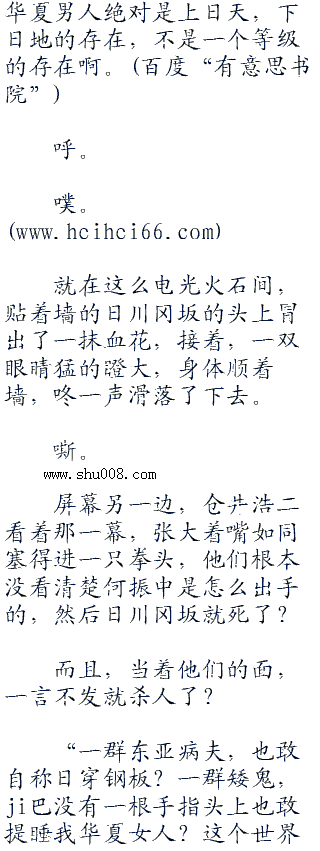 华夏男人绝对是上日天，下
日地的存在，不是一个等级
的存在啊。(百度“有意思书
院”)
呼。
噗。
(www.hcihci66.com)
就在这么电光火石间，
贴着墙的日川冈坂的头上冒
出了一抹血花，接着，一双
眼睛猛的瞪大，身体顺着
墙，咚一声滑落了下去。
嘶。
www.shu008.com
屏幕另一边，仓井浩二
看着那一幕，张大着嘴如同
塞得进一只拳头，他们根本
没看清楚何振中是怎么出手
的，然后日川冈坂就死了？
而且，当着他们的面，
一言不发就杀人了？
“一群东亚病夫，也敢
自称日穿钢板？一群矮鬼，
ji巴没有一根手指头上也敢
提睡我华夏女人？这个世界